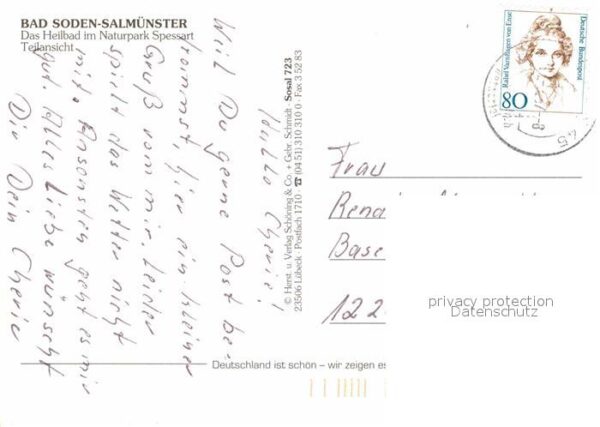 BAD SODEN-SALMÜNSTER
Das Heilbad im Naturpark Spessart
Teilansicht
Hallo Cherie!
Weil Du gerne Post be-
kommst, hier ein kleiner
Gruß vom mir. Leider
spielt das Wetter nicht
mit. Ansonsten geht es mir
gut. Alles Liebe wünscht
Dir Dein Cherie
© Herst. u. Verlag Schöning & Co. + Gebr. Schmidt · Sosal 723
23506 Lübeck · Postfach 1710 · ☎ (04 51) 310 310 0 · Fax 3 52 83
Deutsche Bundespost
Rahel Varnhagen von Ense
80
Frau
Rena
Base
122
privacy protection
Datenschutz
Deutschland ist schön – wir zeigen es